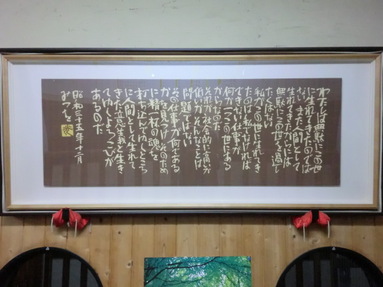 わたしは無駄にこの世
に生れてきたのでは
ない また人間として
生れてきたからには
無駄にこの世を過し
たくない
私がこの世に生れてき
たのは私でなければ
できない仕事が
何か一つこの世にある
からなのだ
それが社会的に高いか
低いかそんなことは
問題ではない
その仕事が何である
かを見つけ そのため
に精一杯の魂を
打ち込んでゆくところ
に人間として生れて
きた意義と生き
てゆくよろこびが
あるのだ
昭和三十五年 月
みつを